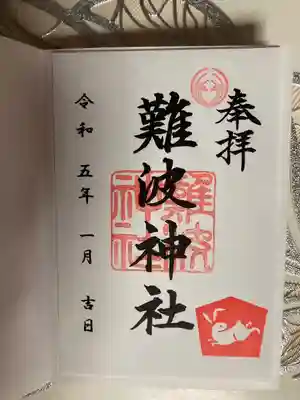 奉拝
難波神社
令和五年一月吉日
難波
神社